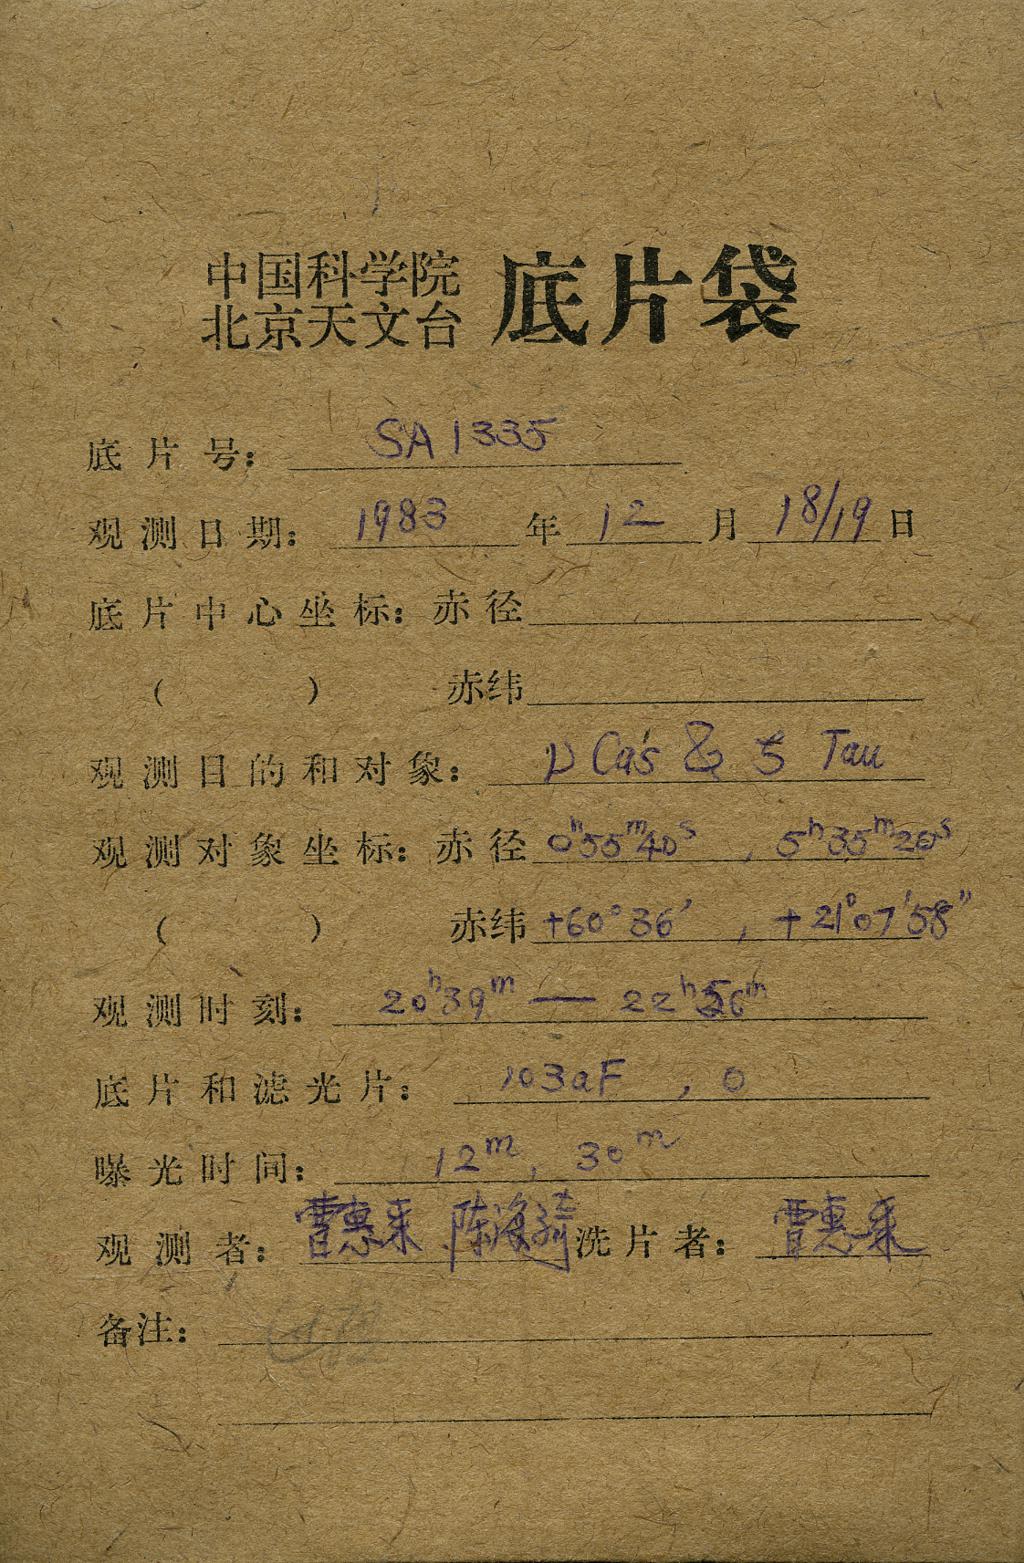 中国科学院
北京天文台 底片袋
底片号: SA1335
观测日期: 1983年12月18/19日
底片中心坐标: 赤径
( ) 赤纬
观测目的和对象: ν Cas & ζ Tau
观测对象坐标: 赤径 0ʰ55ᵐ40ˢ , 5ʰ35ᵐ20ˢ
( ) 赤纬 +60°36′ , +21°07′58″
观测时刻: 20ʰ39ᵐ — 22ʰ56ᵐ
底片和滤光片: 103aF , 0
曝光时间: 12ᵐ, 30ᵐ
观测者: 曹惠来 陈海琦 洗片者: 曹惠来
备注: